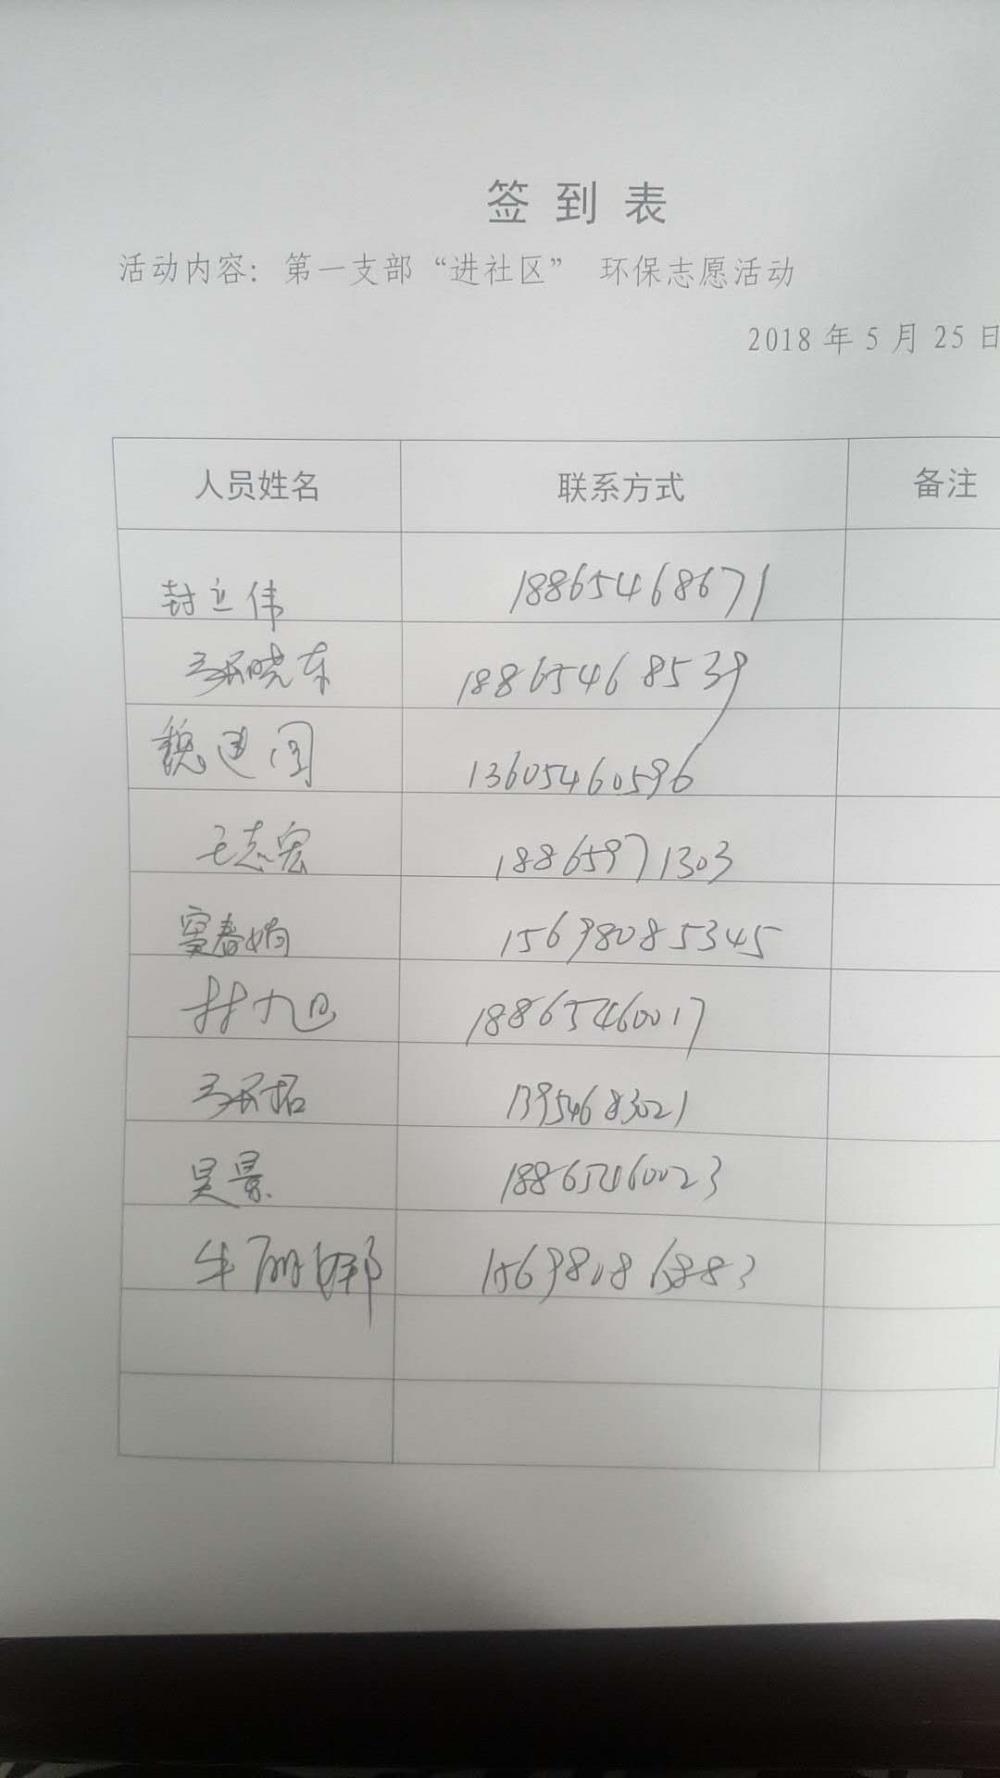 签到表
活动内容：第一支部“进社区” 环保志愿活动
2018年5月25日
人员姓名 联系方式 备注
封立伟 18865468671
晓东 18865468539
魏建国 13605460596
王志宏 18865971303
窦春娟 15698085345
林旭 18865460017
拓 13954683021
吴景 18865460023
牛丽娜 15698086883